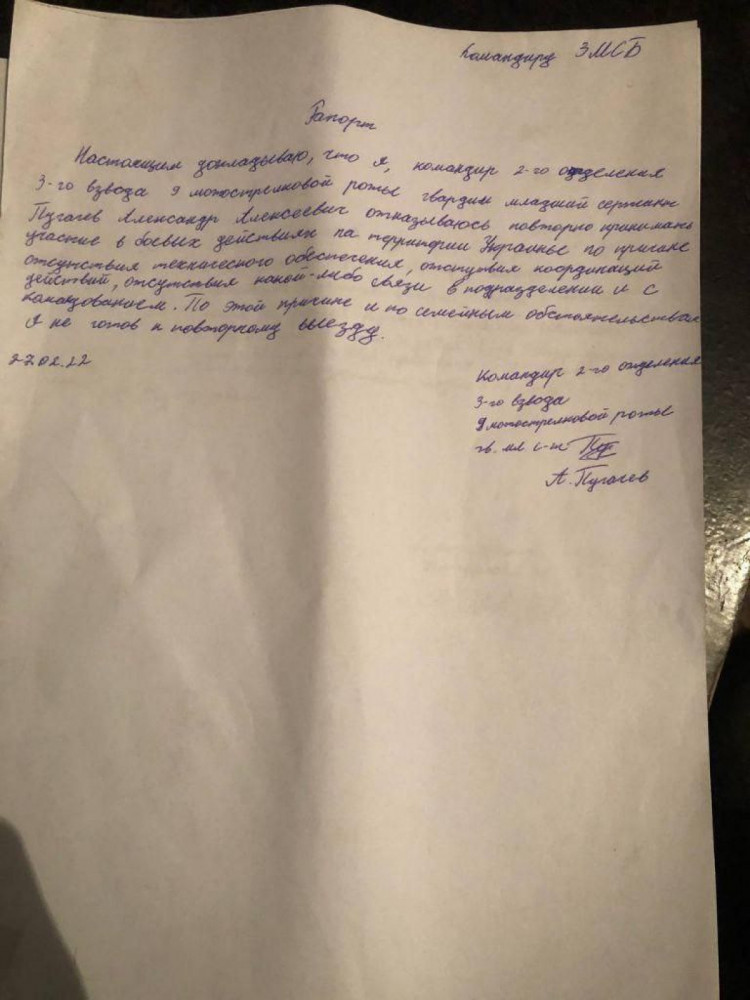 Командиру 3МСБ
Рапорт
Настоящим докладываю, что я, командир 2-го отделения
3-го взвода 9 мотострелковой роты гвардии младший сержант
Пугачев Александр Алексеевич отказываюсь повторно принимать
участие в боевых действиях на территрии Украины по причине
отсутствия технического обеспечения, отсутствия координаций
действий, отсутствия какой-либо связи в подразделении и с
командованием. По этой причине и по семейным обстоятельствам
я не готов к повторному выезду.
27.02.22
Командир 2-го отделения
3-го взвода
9 мотострелковой роты
гв. мл с-т
А. Пугачев